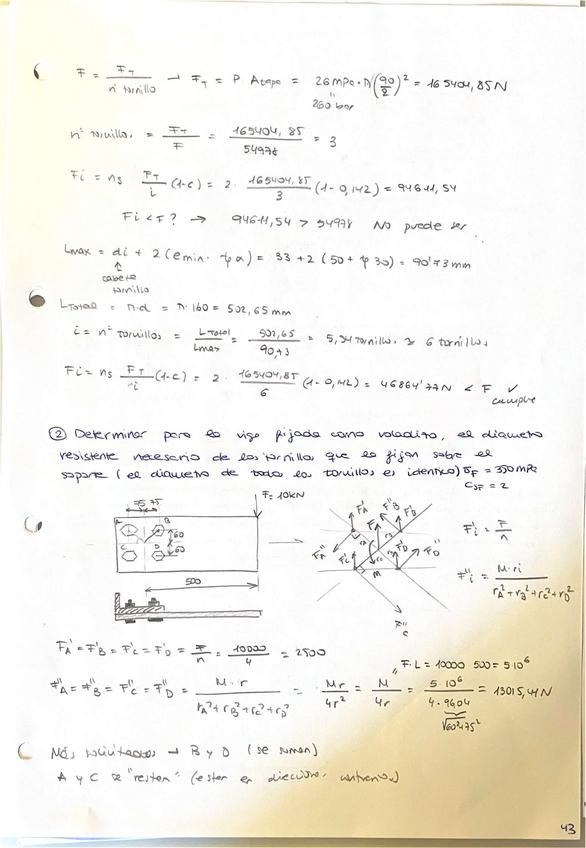 F = F_T / nº tornillo → F_T = P Atapa = 26 MPa · π (90/2)² = 165404,85 N
260 bar
nº tornillos = F_T / F = 165404,85 / 54978 = 3
Fi = ns F_T / i (1-c) = 2 · 165404,85 / 3 (1-0,142) = 94611,54
Fi < F? → 94611,54 > 54978 No puede ser
Lmax = di + 2 (emin · tg α) = 33 + 2 (50 + tg 30) = 90'73 mm
↑ cabeza tornillo
L Total = π · d = π · 160 = 502,65 mm
i = nº tornillos = L Total / Lmax = 502,65 / 90,73 = 5,54 tornillos ≈ 6 tornillos
Fi = ns F_T / i (1-c) = 2 · 165404,85 / 6 (1-0,142) = 46864'77 N < F ✓
cumple
② Determinar para la viga fijada como voladizo, el diametro
resistente necesario de los tornillos que la fijan sobre el
soporte (el diametro de todos los tornillos es identico) σF = 350 MPa
CSF = 2
75 75
F = 10KN
A B
60
C D
60
500
F'A F''B F'B F'D
F''A F'C F''D
M
F''C
F'i = F / n
F''i = M · ri / rA² + rB² + rC² + rD²
F'A = F'B = F'C = F'D = F / n = 10000 / 4 = 2500
F · L = 10000 · 500 = 5·10⁶
F''A = F''B = F''C = F''D = M · r / rA² + rB² + rC² + rD² = Mr / 4r² = M / 4r = 5·10⁶ / 4 · 96,04 = 13015,41 N
√60²+75²
Más solicitados → B y D (se suman)
A y C se "restan" (estan en direcciones contrarias)
43